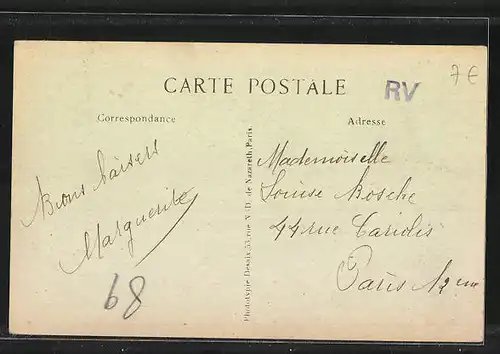 CARTE POSTALE
RV
7€
Correspondance
Adresse
Bons baisers
Marguerite
68
Phototypie Desaix, 53, rue N.-D. de Nazareth, Paris.
Mademoiselle
Louise Bosche
44 rue Cariolis
Paris 12em